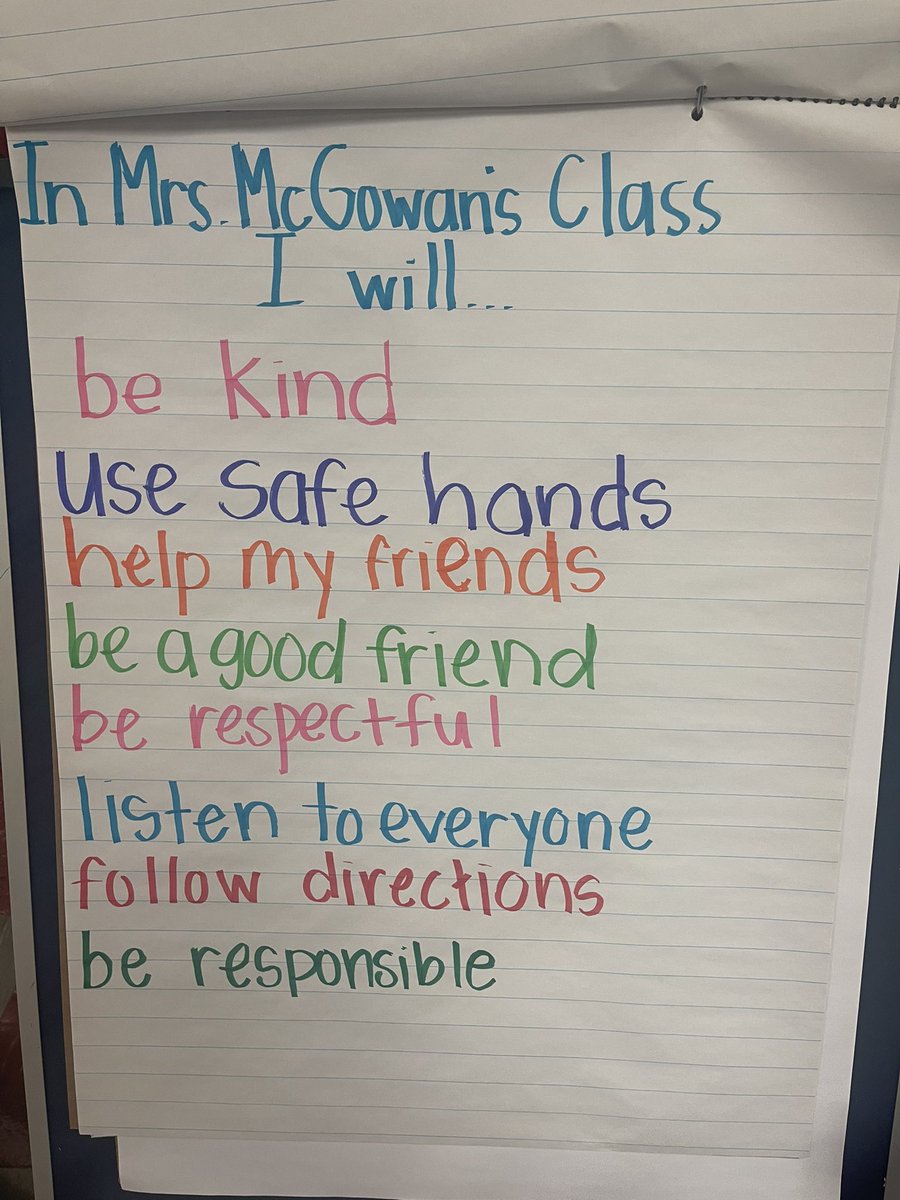 In Mrs. McGowan's Class
I will...
be kind
use safe hands
help my friends
be a good friend
be respectful
listen to everyone
follow directions
be responsible